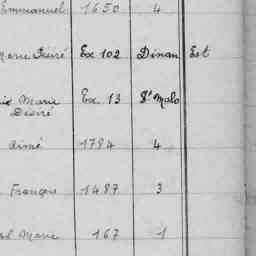 Emmanuel 1650 4
Marie Désiré Ex 102 Dinan Est
Marie Ex. 13 St Malo
Désiré
Aimé 1784 4
François 1487 3
Marie 167 1